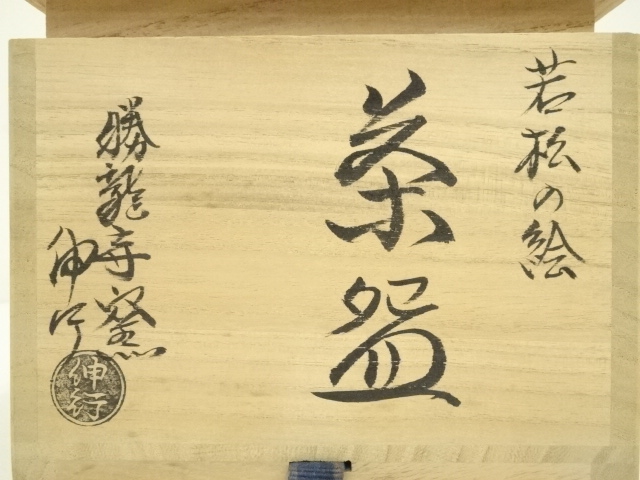 若松の絵
茶盌
勝龍寺窯
伸行
伸行